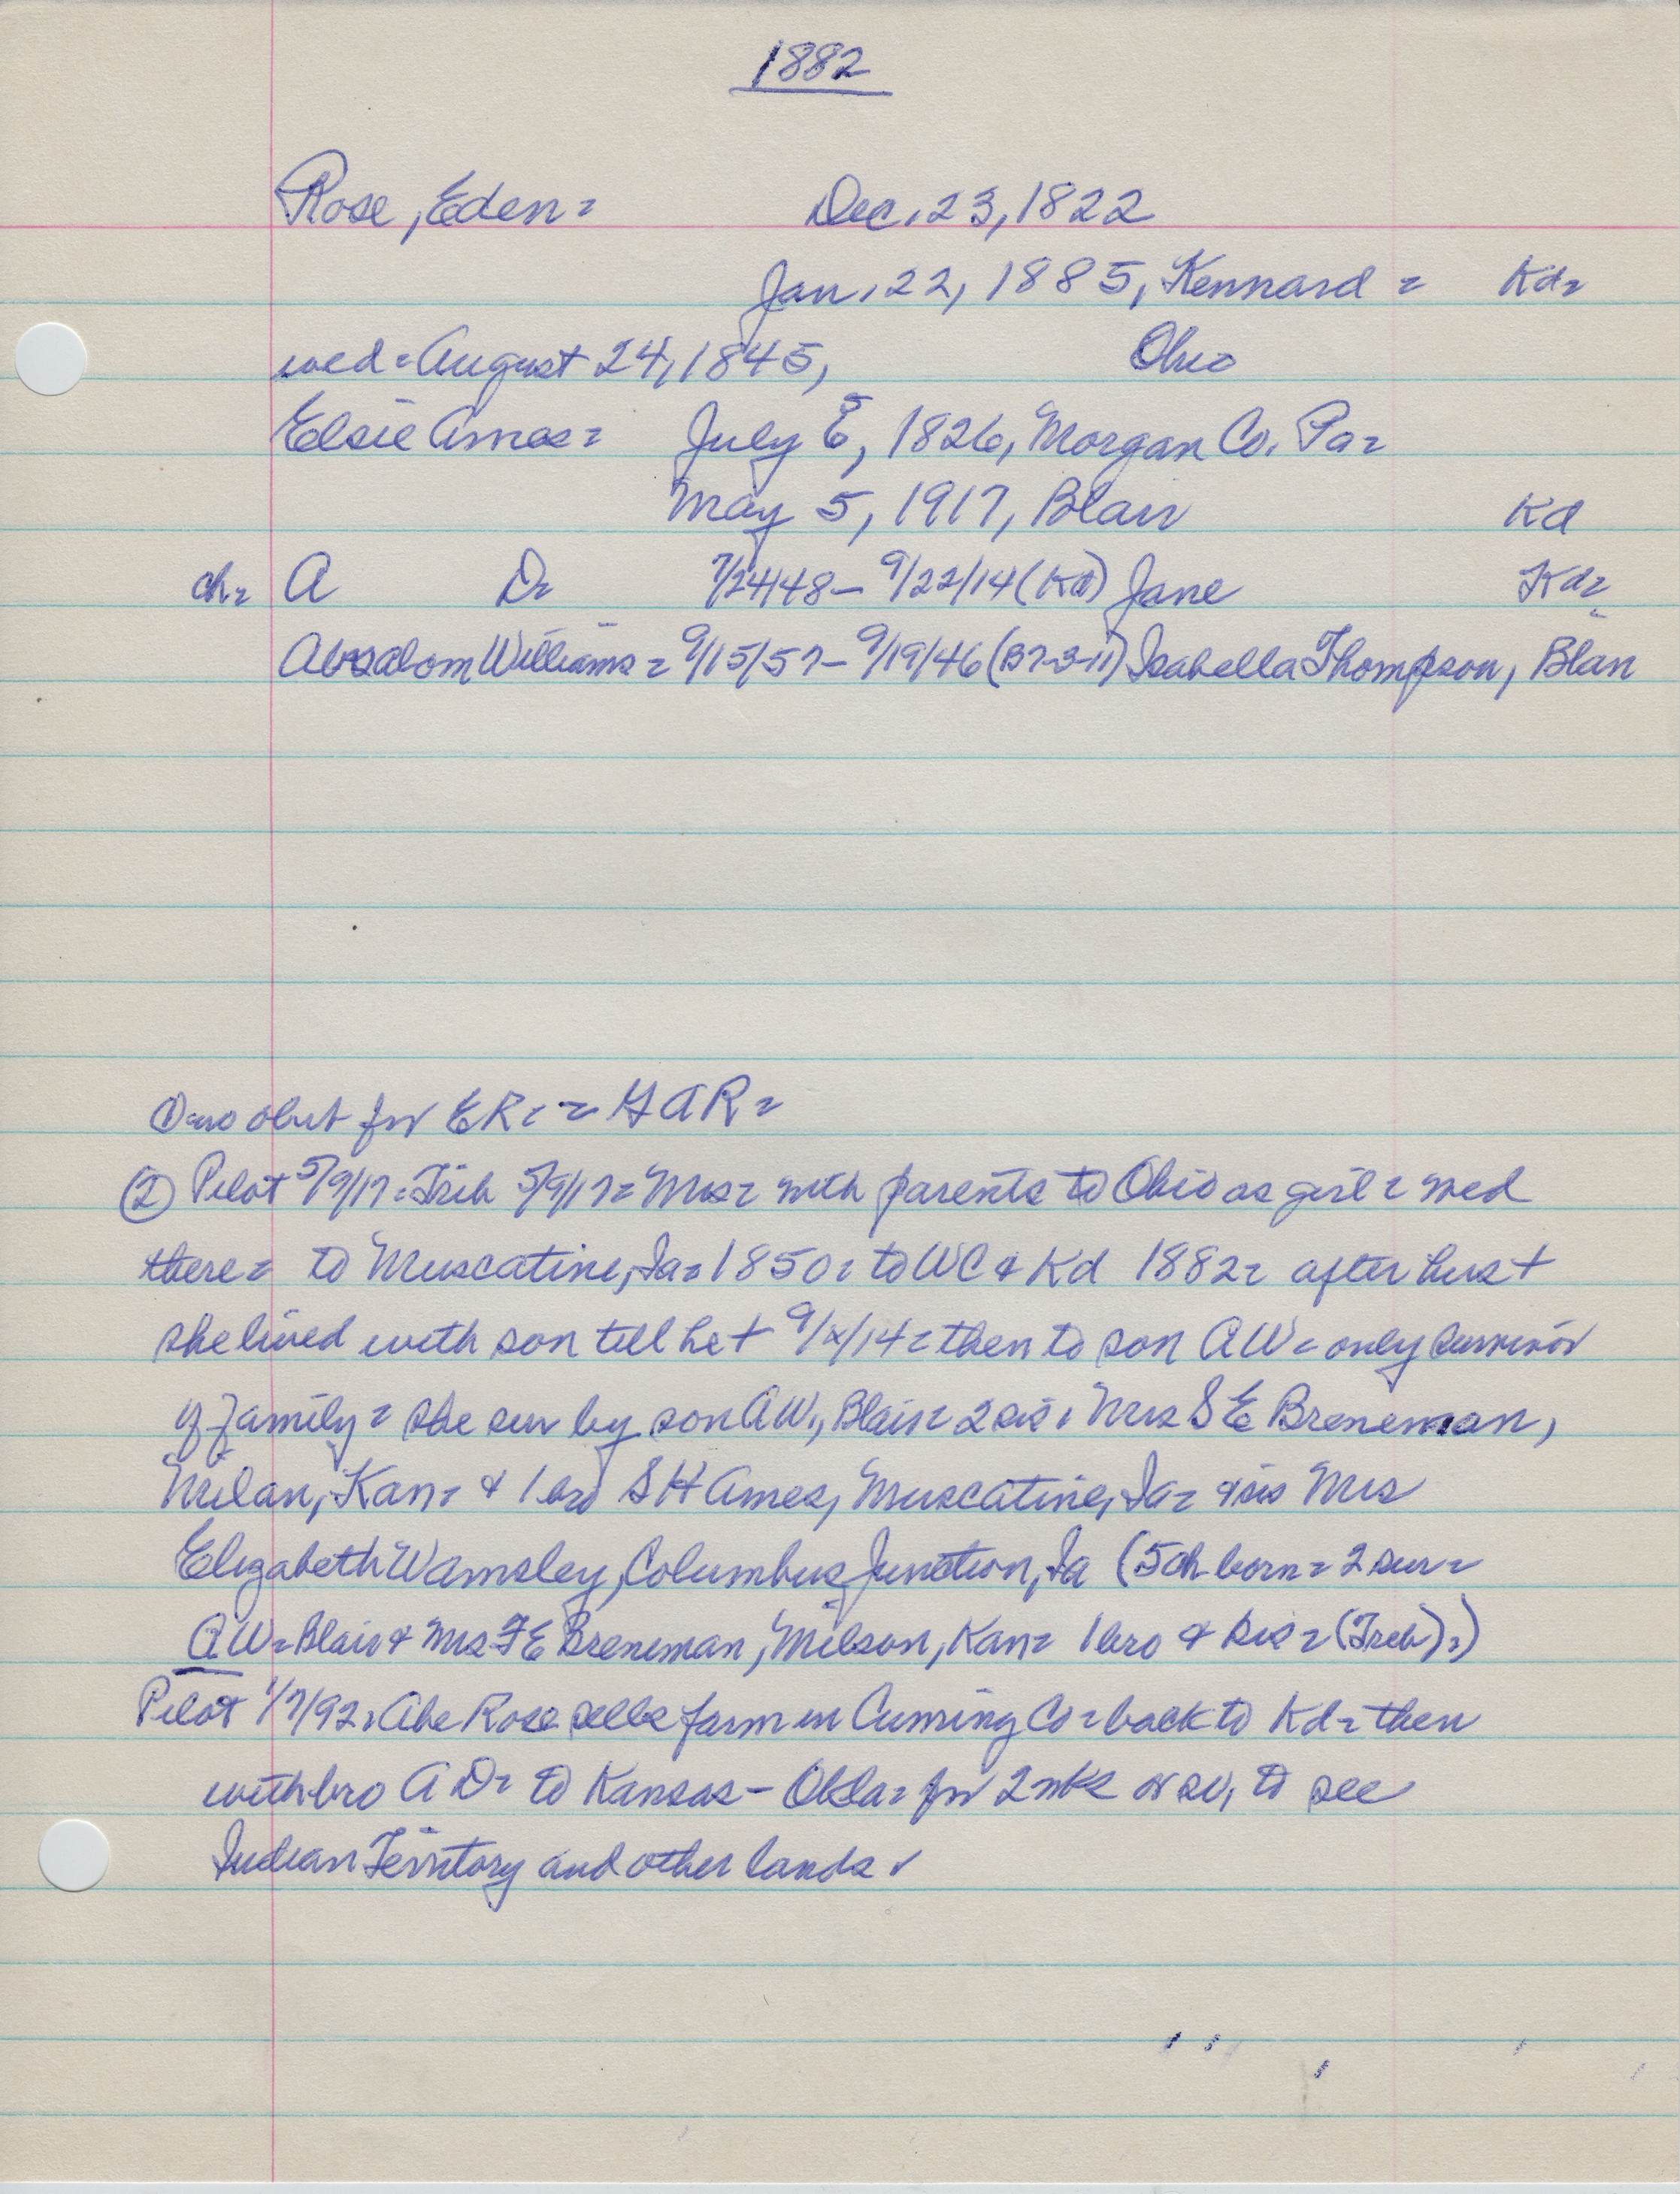 1882
Rose, Eden= Dec. 23, 1822
Jan. 22, 1885, Kennard = Kd=
wed = August 24, 1845, Ohio
Elsie Ames= July 8, 1826, Morgan Co. Pa=
May 5, 1917, Blair Kd
ch= A D= 7/24/48 – 9/22/14 (Kd) Jane Kd=
Absalom Williams = 9/15/57 – 9/19/46 (B7-3-11) Isabella Thompson, Blair
① no obit for ER = = GAR=
② Pilot 5/9/17 = Trib 5/9/17 = Mrs= with parents to Ohio as girl = wed
there= to Muscatine, Ia= 1850= to WC & Kd 1882= after hus +
she lived with son till he + 9/x/14 = then to son AW = only survivor
of family = she sur by son AW., Blair= 2 sis = Mrs S E Breneman,
Milan, Kan= & 1 bro S H Ames, Muscatine, Ia= & sis Mrs
Elizabeth Wamsley, Columbus Junction, Ia (5 ch born = 2 sur=
AW= Blair & Mrs F E Breneman, Milson, Kan= 1 bro & sis = (Trib)=)
Pilot 1/7/92= Abe Rose sells farm in Cuming Co = back to Kd= then
with bro A D= to Kansas – Okla= for 2 wks or so, to see
Indian Territory and other lands